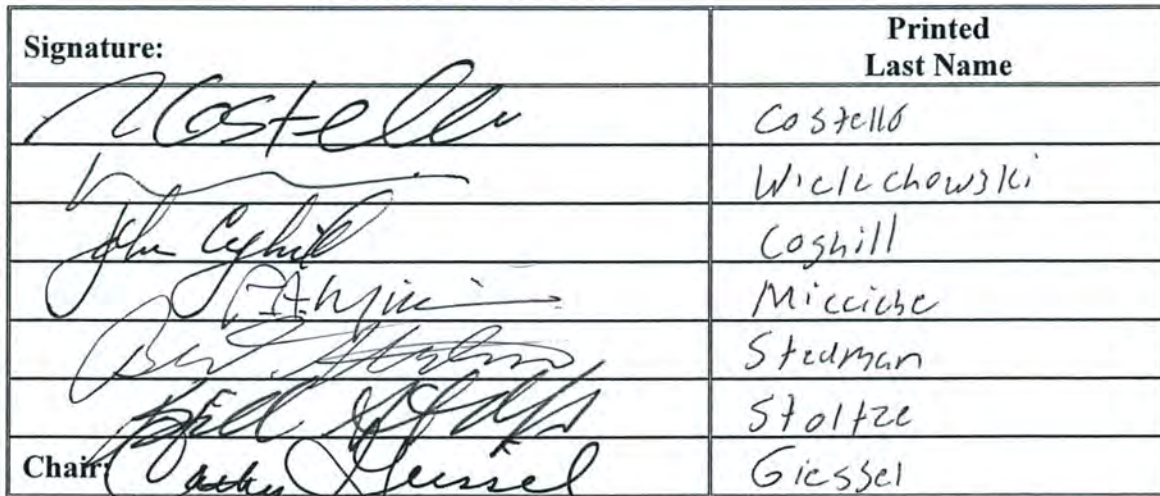 Signature: Printed
Last Name
Costello Costello
Wielechowski
John Coghill Coghill
Micciche
Bert Stedman Stedman
Bill Stoltze Stoltze
Chair: Cathy Giessel Giessel